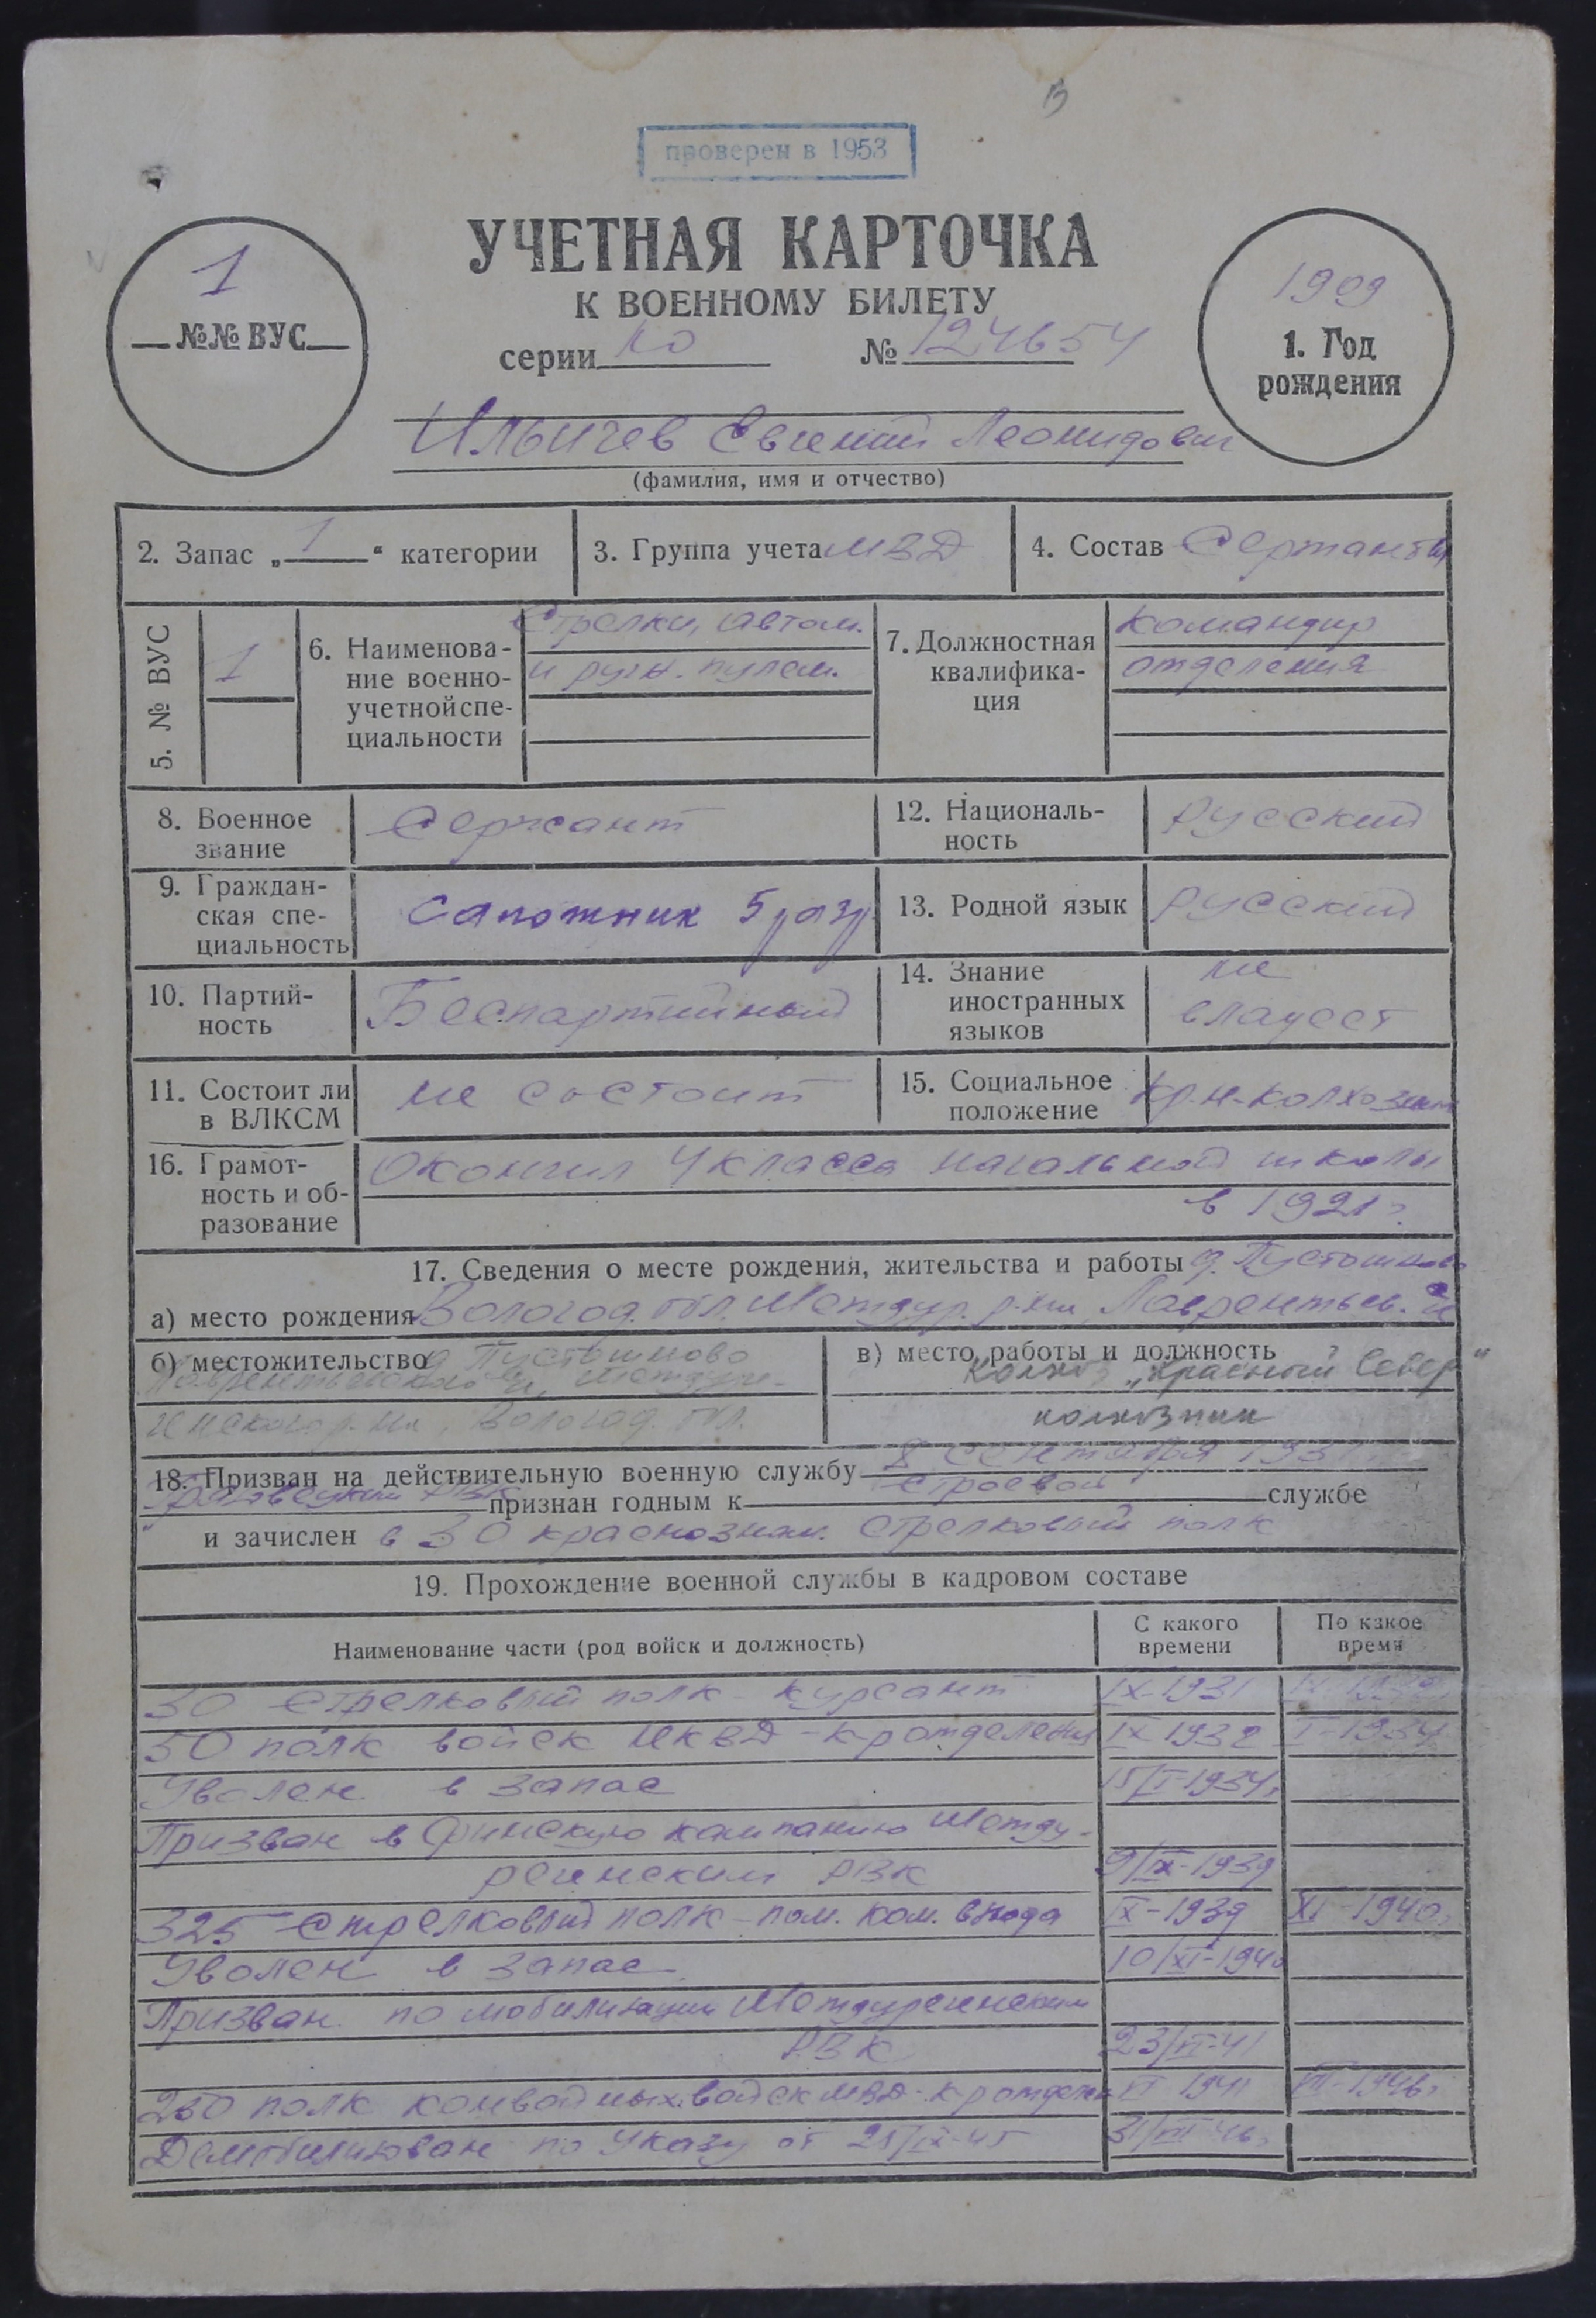 проверен в 1953
УЧЕТНАЯ КАРТОЧКА
К ВОЕННОМУ БИЛЕТУ
серии № 124654
1
№№ ВУС
1909
1. Год рождения
Ильичев Евгений Леонидович
(фамилия, имя и отчество)
2. Запас „ 1 “ категории
3. Группа учета МВД
4. Состав Сержанты
5. № ВУС
1
6. Наименова-
ние военно-
учетной спе-
циальности
Стрелки, автом.
и ручн. пулем.
7. Должностная
квалифика-
ция
командир
отделения
8. Военное
звание
Сержант
12. Националь-
ность
русский
9. Граждан-
ская спе-
циальность
Сапожник 5 разр
13. Родной язык
русский
10. Партий-
ность
Беспартийный
14. Знание
иностранных
языков
не
владеет
11. Состоит ли
в ВЛКСМ
не состоит
15. Социальное
положение
кр-н-колхозник
16. Грамот-
ность и об-
разование
Окончил 4 класса начальной школы
в 1921 г.
17. Сведения о месте рождения, жительства и работы д. Пустошново
а) место рождения Вологод. обл. Междур. р-на, Лаврентьев.
б) местожительство д Пустошново
Лаврентьевского Междуре-
ченского р-на, Вологод. обл.
в) место работы и должность
Колхоз „Красный Север“
колхозник
18. Призван на действительную военную службу 8 сентября 1931
Грязовецким РВК признан годным к строевой службе
и зачислен в 30 краснознам. стрелковый полк
19. Прохождение военной службы в кадровом составе
Наименование части (род войск и должность)
С какого
времени
По какое
время
30 Стрелковый полк - курсант IX-1931 IX-1932
50 полк войск НКВД - к-р отделения IX 1932 I-1934
Уволен в запас 15/I-1934г
Призван в Финскую кампанию Между-
реченским РВК 9/IX-1939
325 Стрелковый полк - пом. ком. взвода IX-1939 XI-1940г
Уволен в запас 10/XI-1940
Призван по мобилизации Междуреченским
РВК 23/VI-41
250 полк конвойных войск МВД - к-р отделен VI 1941
Демобилизован по Указу от